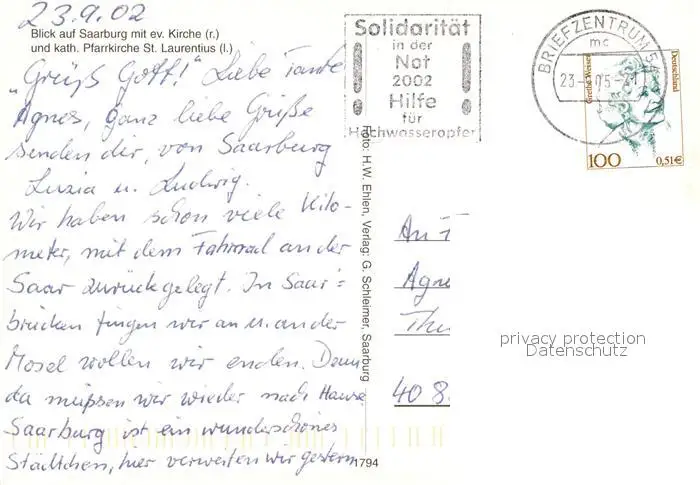 23.9.02
Blick auf Saarburg mit ev. Kirche (r.)
und kath. Pfarrkirche St. Laurentius (l.)
"Grüß Gott!" Liebe Tante
Agnes, ganz liebe Grüße
senden dir, von Saarburg
Luzia u. Ludwig.
Wir haben schon viele Kilo-
meter, mit dem Fahrrad an der
Saar zurückgelegt. In Saar=
brücken fingen wir an u. an der
Mosel wollen wir enden. Denn
da müssen wir wieder nach Hause
Saarburg ist ein wunderschönes
Städtchen, hier verweilten wir gestern
Foto: H.W. Ehlen, Verlag: G. Schleimer, Saarburg
1794
Solidarität
in der
Not
2002
Hilfe
für
Hochwasseropfer
BRIEFZENTRUM
mc
23
Grethe Weiser
Deutschland
100
0,51€
An
Agne
40 8
privacy protection
Datenschutz